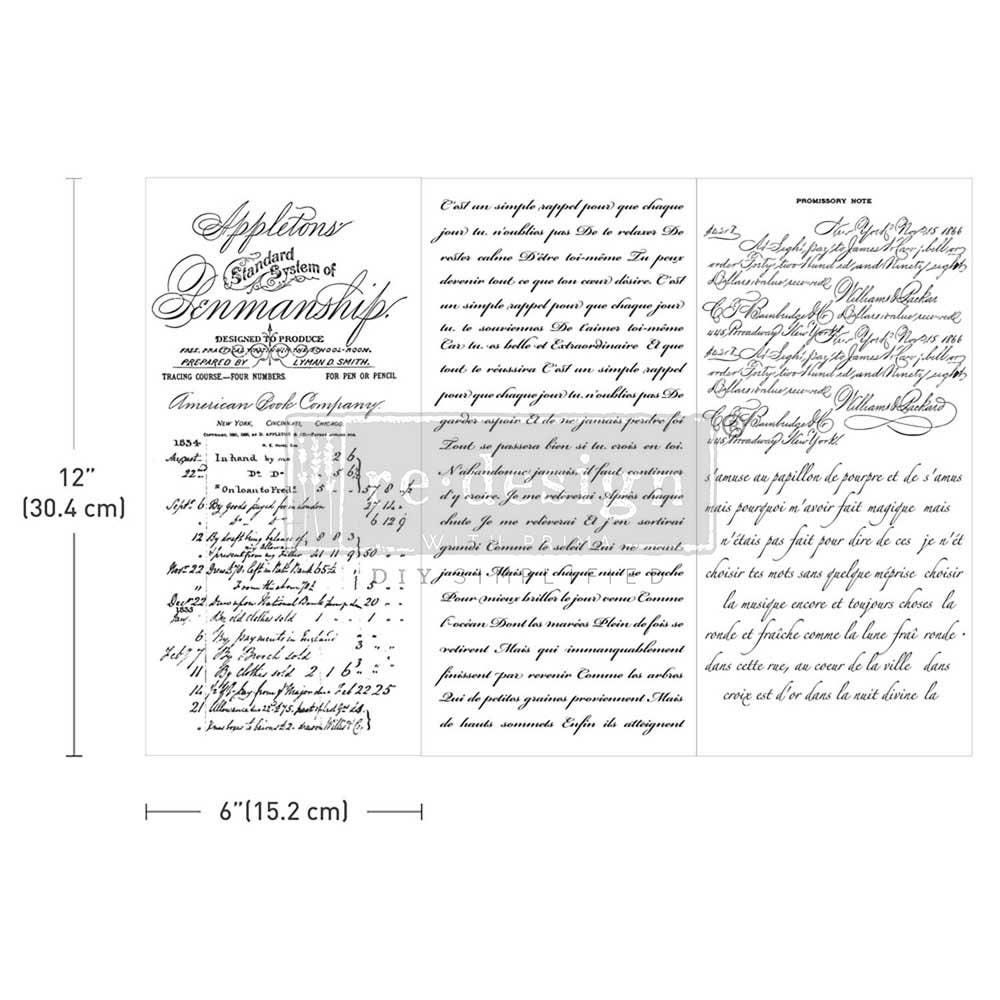 12”
(30.4 cm)
6”(15.2 cm)
Appletons'
Standard
System of
Penmanship.
DESIGNED TO PRODUCE
FREE, PRACTICAL WRITING IN THE SCHOOL-ROOM.
PREPARED BY LYMAN D. SMITH.
TRACING COURSE—FOUR NUMBERS. FOR PEN OR PENCIL
American Book Company.
NEW YORK, CINCINNATI, CHICAGO.
1834
August In hand by me 2 6
22 Do Do 5 6
" On loan to Fredk 5 - 57 8 6
Septr 6 By goods payed for in London 27 14 -
6 12 9
12 By draft being balance of 8 8 3
my allowance
" present from my Father 41 11 9 50 - -
Novr 22
from the above 5 - -
Decr 22 Draw upon National Bank 20 - -
1835
Jany By old clothes sold 1 - - 1 - -
6 By payments in England
Feby 7 By Brooch sold
11 By clothes sold 2 1 6
14 22 25
21 Allowance
C'est un simple rappel pour que chaque
jour tu n'oublies pas De te relaxer De
rester calme D'être toi-même Tu peux
devenir tout ce que ton cœur désire. C'est
un simple rappel pour que chaque jour
tu te souviennes De t'aimer toi-même
Car tu es belle et Extraordinaire Et que
tout te réussira C'est un simple rappel
pour que chaque jour tu n'oublies pas De
garder espoir Et de ne jamais perdre foi
Tout se passera bien si tu crois en toi.
N'abandonne jamais, il faut continuer
d'y croire. Je me relèverai Après chaque
chute Je me relèverai Et j'en sortirai
grandi Comme le soleil Qui ne meurt
jamais Mais qui chaque nuit se couche
Pour mieux briller le jour venu Comme
l'océan Dont les marées Plein de fois se
retirent Mais qui immanquablement
finissent par revenir Comme les arbres
Qui de petites graines proviennent Mais
de hauts sommets Enfin ils atteignent
re·design
WITH PRIMA
DIY SIMPLIFIED
PROMISSORY NOTE
New York, Nov. 15 1866
At Sight, pay to James W. Carr, bell or
order Forty two Hundred, and Ninety, eight
Dollars value received
Williams & Packar
C. F. Bainbridge & Co Dollars value received
445, Broadway New York New York, Nov. 15 1866
At Sight, pay to James W. Carr, bell or
order Forty two Hundred, and Ninety, eight
Dollars value received
Williams & Packard
C. F. Bainbridge & Co
445, Broadway New York
s'amuse au papillon de pourpre et de s'amus
mais pourquoi m'avoir fait magique mais
n'étais pas fait pour dire de ces je n'ét
choisir tes mots sans quelque méprise choisir
la musique encore et toujours choses la
ronde et fraîche comme la lune fraî ronde ·
dans cette rue, au coeur de la ville dans
croix est d'or dans la nuit divine la